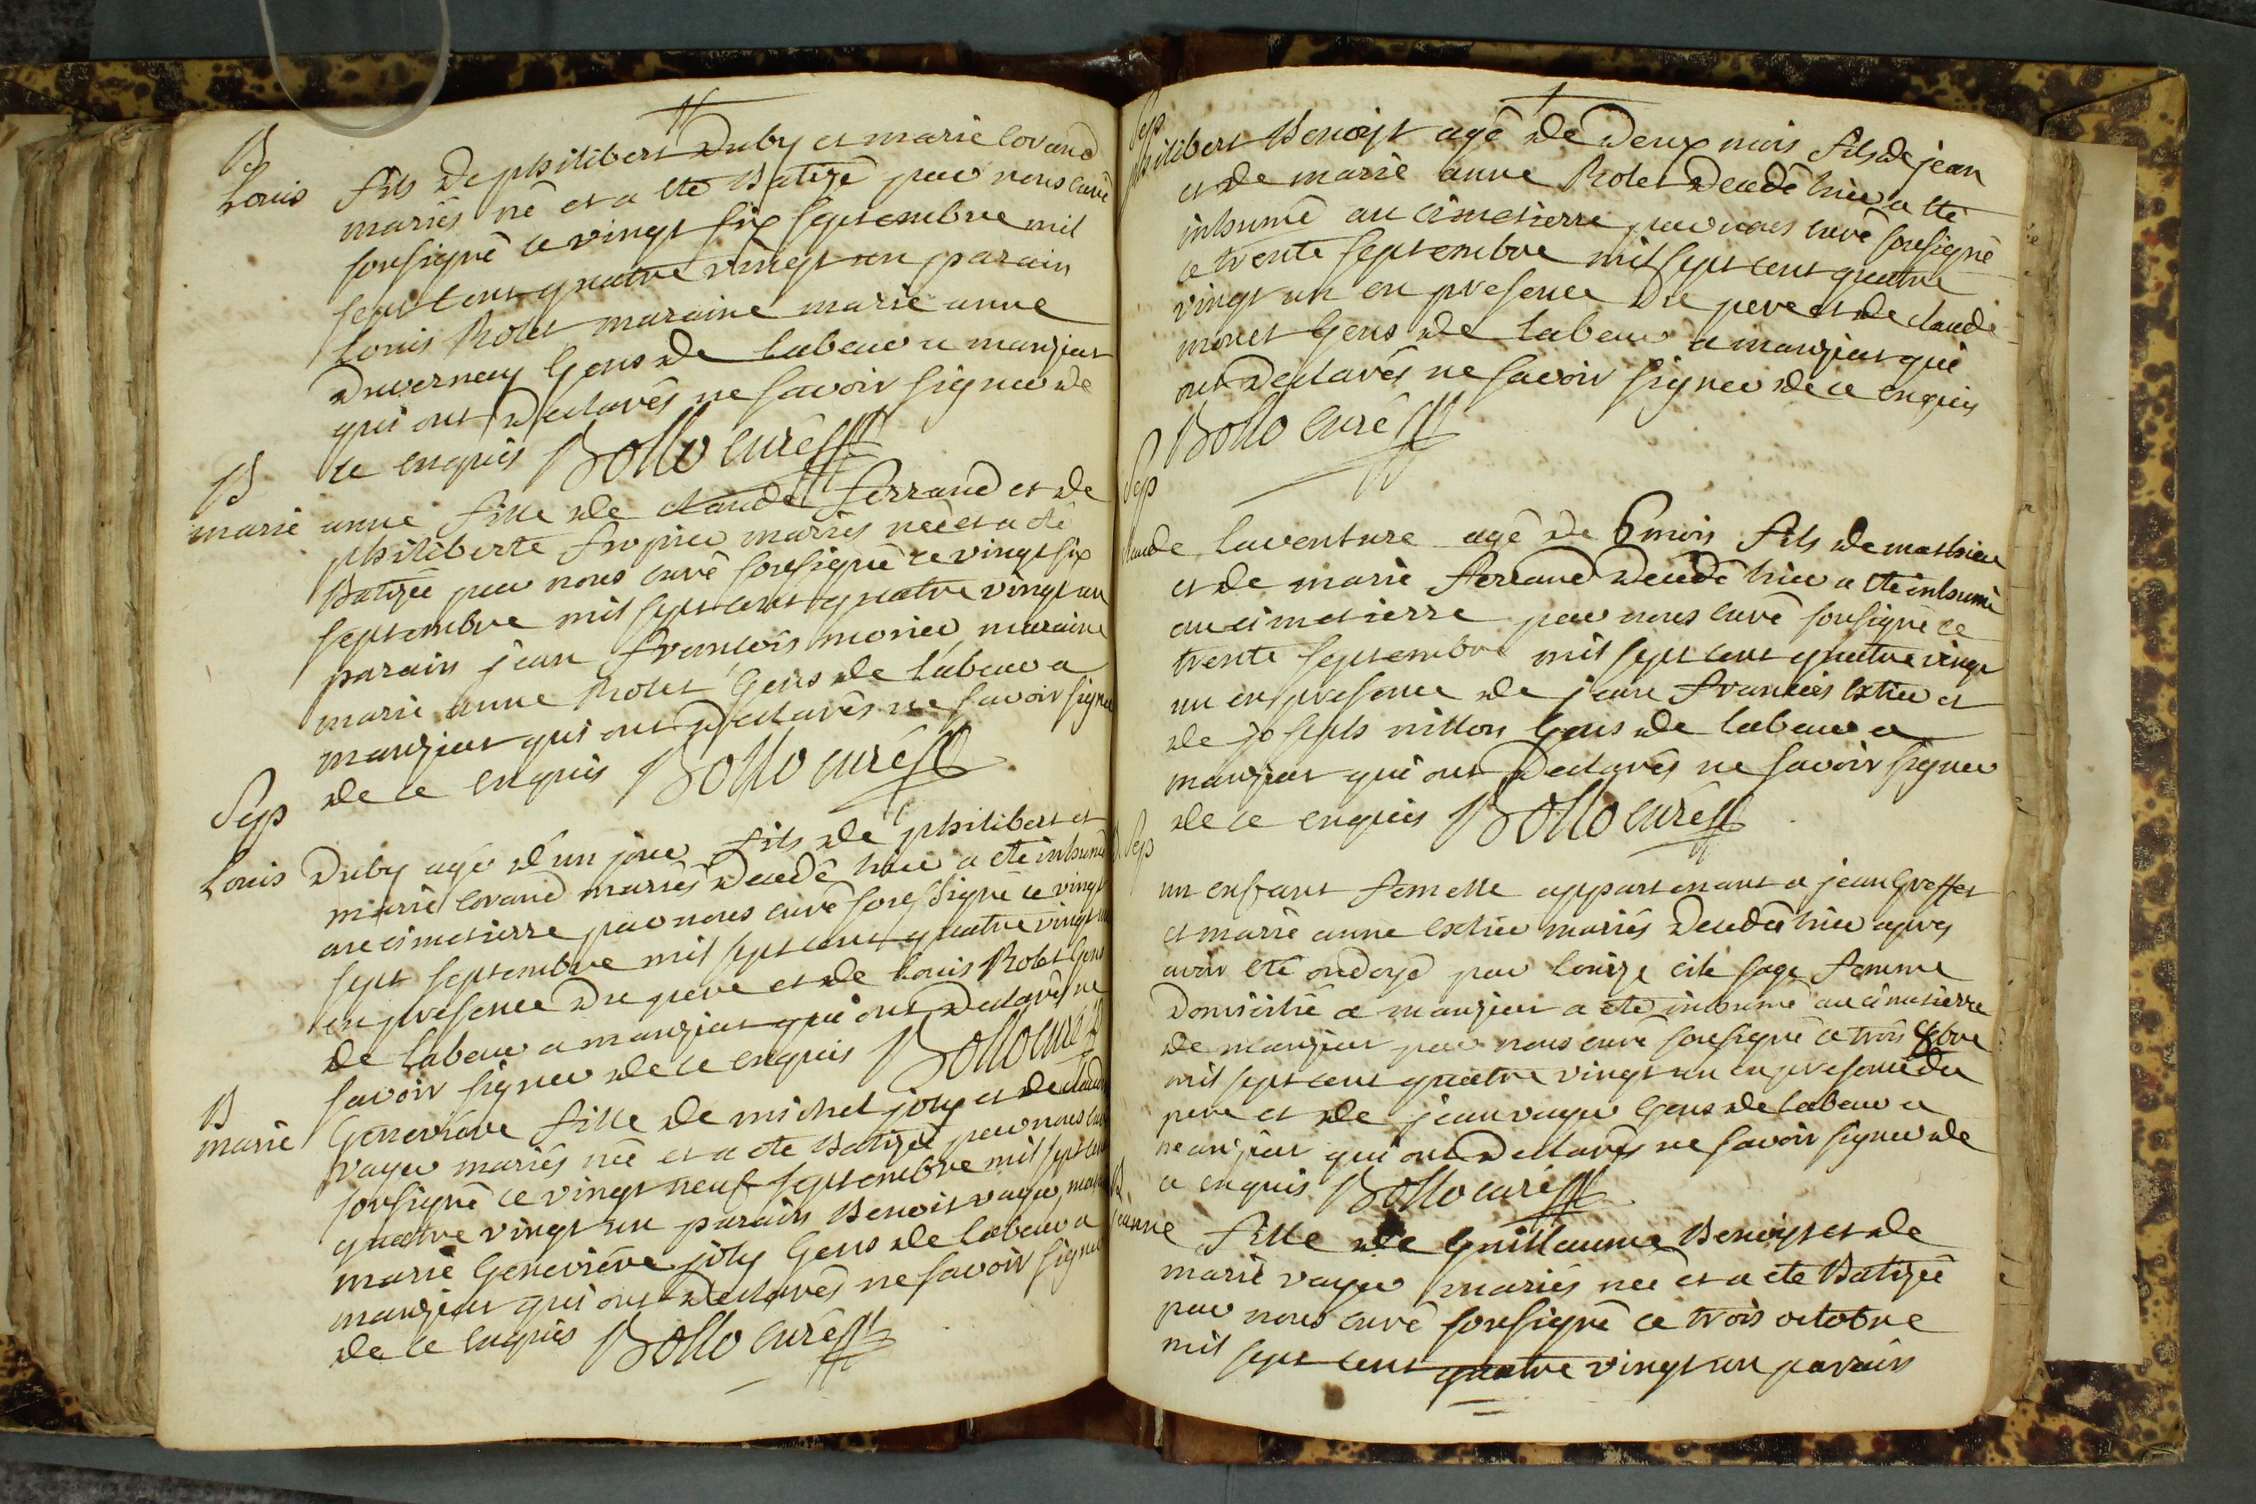 B
Louis fils de philibert Duby et marie Corand
mariés né et a eté Batizé par nous curé
sousigné ce vingt six septembre mil
sept cent quatre vingt un parain
Louis Rolet maraine marie anne
Duvernay Gens de labeur a manziat
qui ont Declarés ne savoir signer de
ce enquis Bollo curé
B
marie anne fille de claude ferrand et de
philiberte mariés née et a eté
Batizée par nous curé sousigné ce vingt six
septembre mil sept cent quatre vingt un
parain jean francois monier maraine
marie anne Rolet Gens de labeur a
manziat qui ont Declarés ne savoir signer
de ce enquis Bollo curé
Sep
Louis Duby agé d'un jour fils de philibert et
marie Corand mariés Decedé hier a eté inhumé
au cimetierre par nous curé sousigné ce vingt
sept septembre mil sept cent quatre vingt un
en presence Du pere et de Louis Rolet Gens
de labeur a manziat qui ont Declaré ne
savoir signer de ce enquis Bollo curé
B
marie Genevieve fille de michel joly et de claudine
vayer mariés née et a eté Batizée par nous curé
sousigné ce vingt neuf septembre mil sept cent
quatre vingt un parain Benoit vayer maraine
marie Genevieve joly Gens de labeur a
manziat qui ont Declarés ne savoir signer
de ce enquis Bollo curé
Sep
philibert Benoist agé de Deux mois fils de jean
et de marie anne Rolet Decedé hier a eté
inhumé au cimetierre par nous curé sousigné
ce trente septembre mil sept cent quatre
vingt un en presence Du pere et de claude
monet Gens de labeur a manziat qui
ont Declarés ne savoir signer de ce enquis
Bollo curé
Sep
claude laventure agé de 6 mois fils de mathieu
et de marie ferrand Decedé hier a eté inhumé
au cimetierre par nous curé sousigné ce
trente septembre mil sept cent quatre vingt
un en presence de jean francois Extier et
de joseph nitton Gens de labeur a
manziat qui ont Declarés ne savoir signer
de ce enquis Bollo curé
Sep
un enfant femelle appartenant a jean Greffet
et marie anne Extier mariés Decedée hier apres
avoir eté ondoyé par Louize sage femme
Domicilié a manziat a eté inhumé au cimetierre
de manziat par nous curé sousigné ce trois 8bre
mil sept cent quatre vingt un en presence du
pere et de jean vayer Gens de labeur a
manziat qui ont Declarés ne savoir signer de
ce enquis Bollo curé
B
jeanne fille de Guillaume Benoist et de
marie vayer mariés née et a eté Batizée
par nous curé sousigné ce trois octobre
mil sept cent quatre vingt un parain